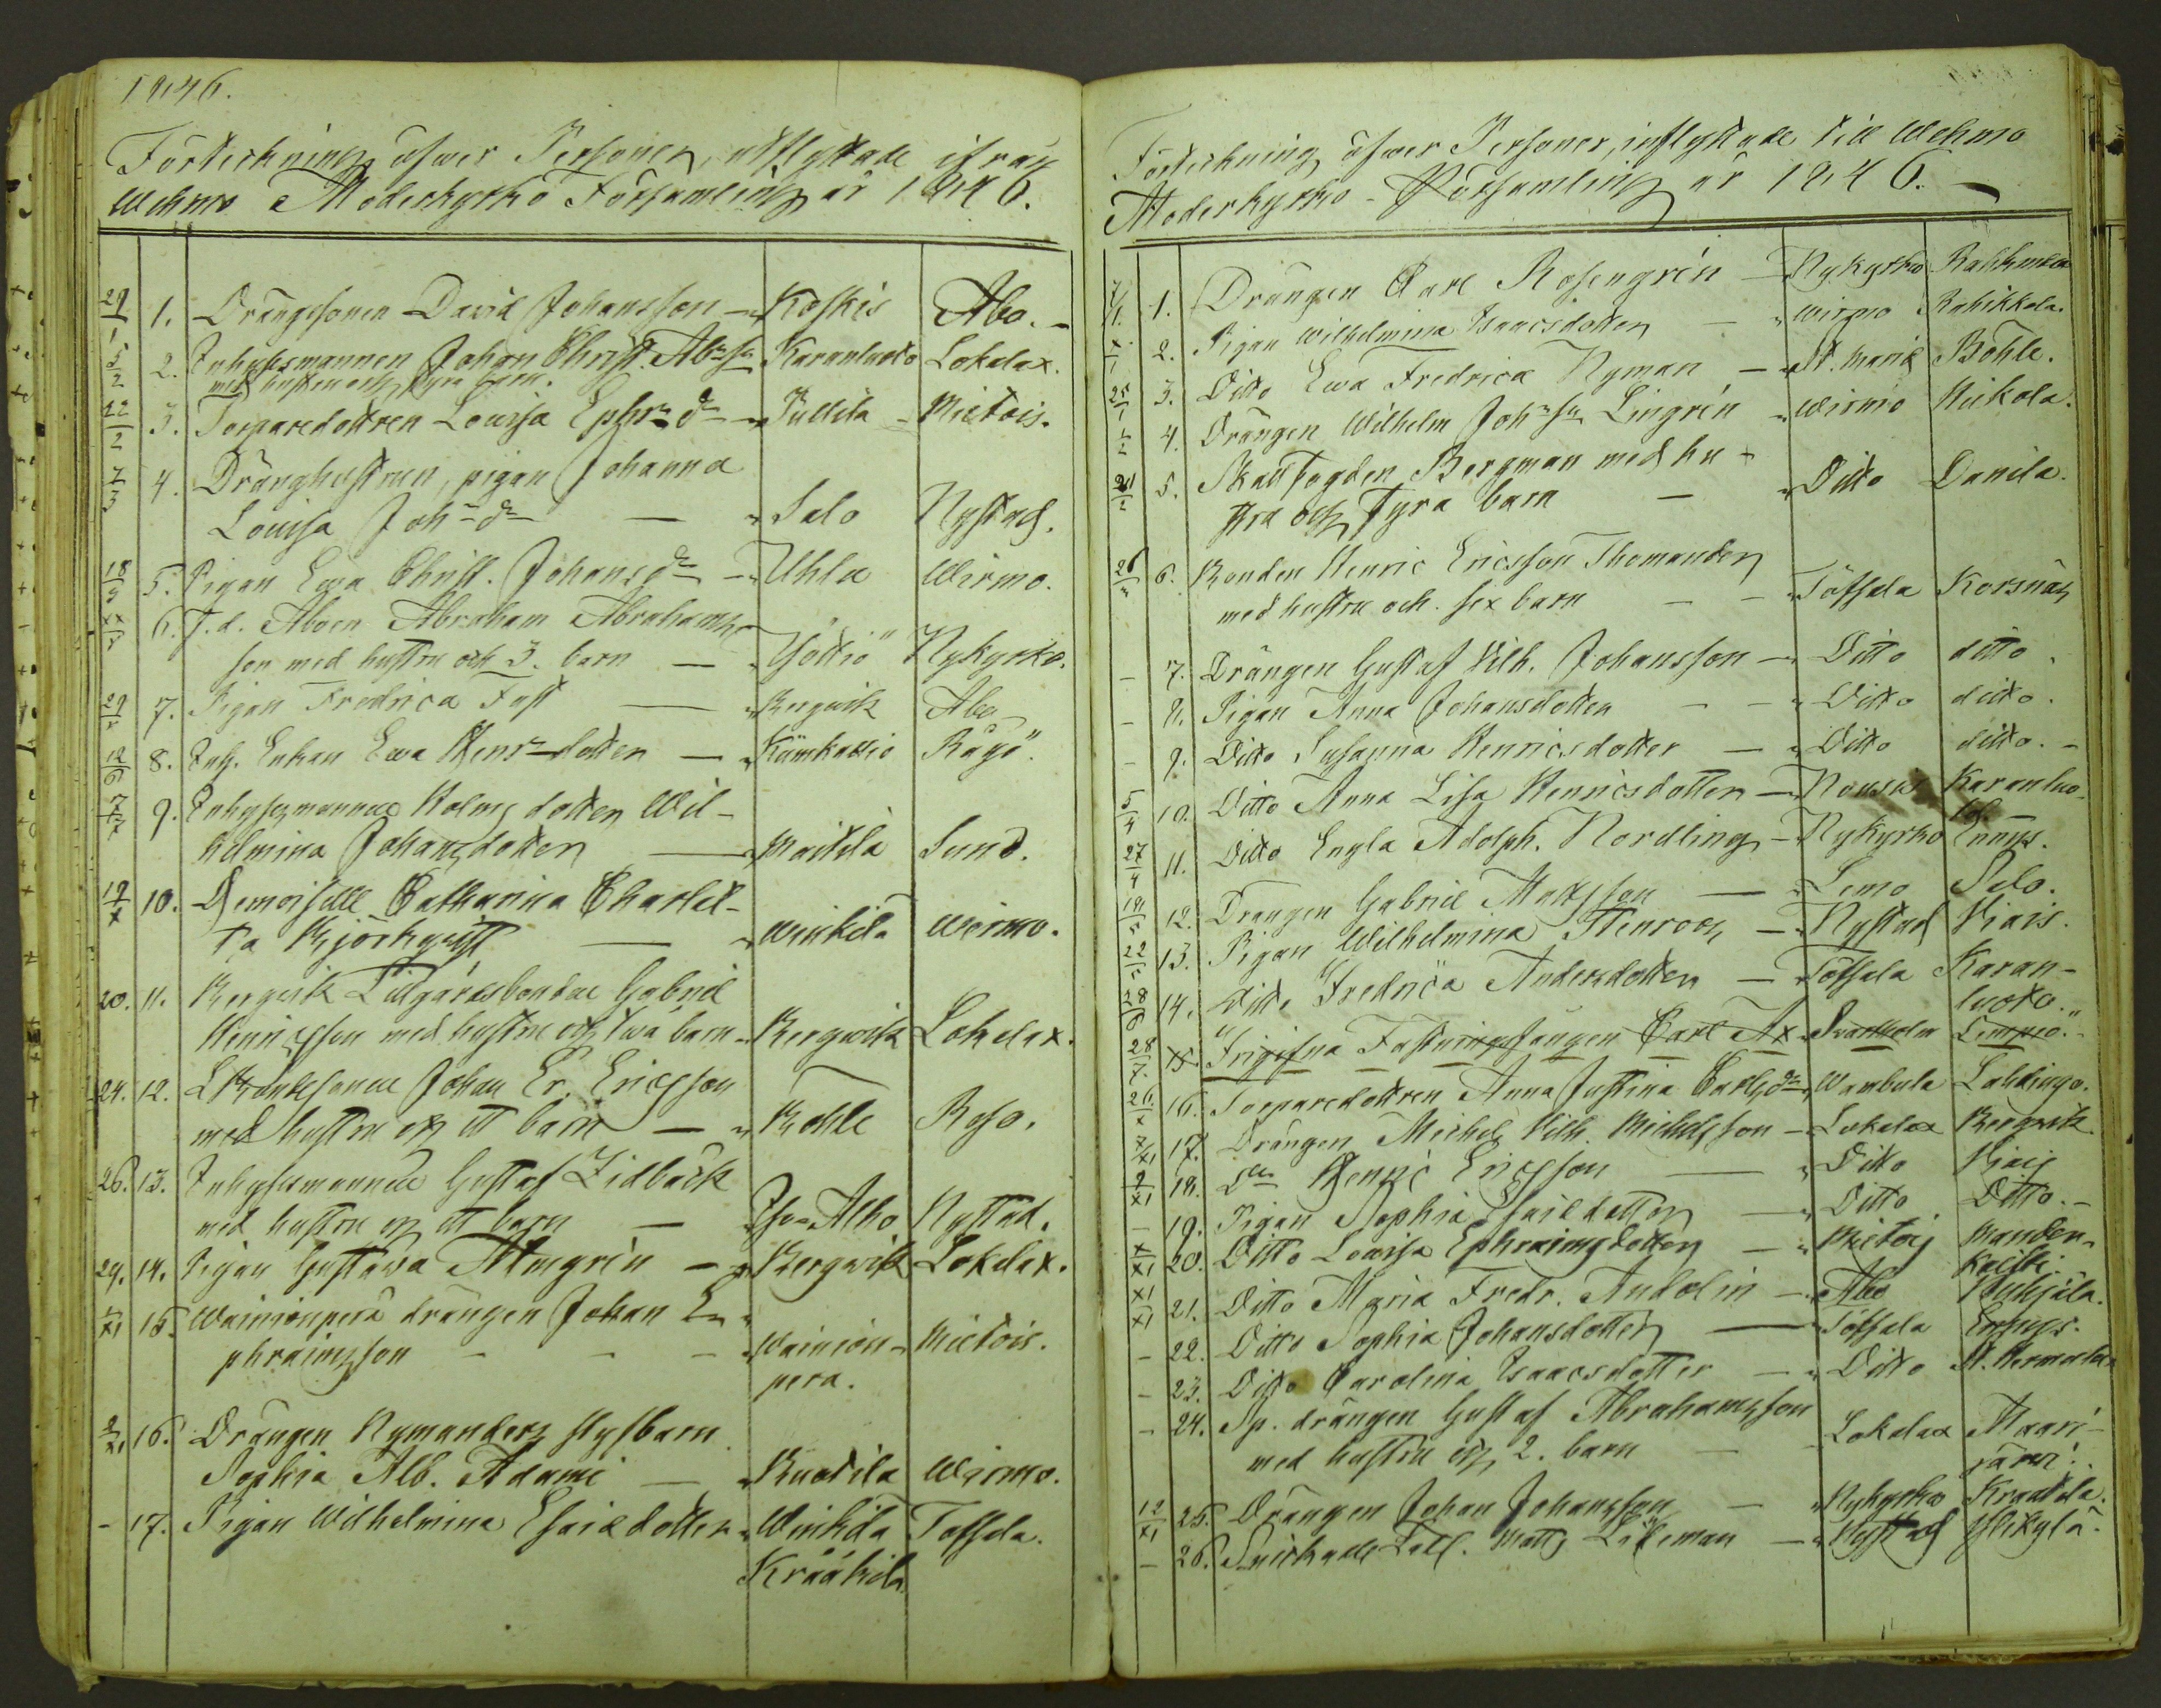 1846.
Förteckning öfwer Personer, utflyttade ifrån
Wehmo Moderkyrko Församling år 1846.
29/1 1. Drängsonen David Johansson Koskis Åbo.
5/2 2. Inhysesmannen Johan Christ. Abr:sn Karanluoto Lokalax.
med hustru och fyra barn.
22/2 3. Torparedottren Lovisa Ephr:dr Puttila Mietois.
7/3 4. Dränghustrun, pigan Johanna
Lovisa Joh:dr Salo Nystad.
18/3 5. Pigan Ewa Christ. Johansdr Uhlu Wirmo.
6. f.d. Åboen Abraham Abrahams-
son med hustru och 3. barn Nykyrko.
7. Pigan Fredrica Fast Bergvik Åbo
12/6 8. Inh. Enkan Ewa Henr:dotter Kämkallio Rågö.
9. Inhysesmannens Holms dotter Wil-
helmina Johansdotter Maittila Sund.
10. Demoiselle Catharina Charlot-
ta Björkqvist Winkila Wirmo.
20. 11. Bergvik Lillgårdsbonden Gabriel
Henricsson med hustru och twå barn Bergwik Lokalax.
24. 12. Bondesonen Johan Er. Ericsson
med hustru och ett barn Bohle Reso.
26. 13. Inhysesmannen Gustaf Lidbäck
med hustru och ett barn Alho Nystad.
29. 14. Pigan Gustava Almgrén Bergwik Lokalax.
15. Wainionperä drängen Johan E-
phraimsson Wainion- Mietois.
perä.
16. Drängen Nymanders styfbarn
Sophia Alb. Adami Kuotila Wirmo.
- 17. Pigan Wilhelmina Esaiedotter Winkila Töfsala.
Krääkilä
Förteckning öfwer Personer, inflyttade till Wehmo
Moderkyrko-Församling år 1846.
1. Drängen Carl Rosengrén Nykyrko Rahikkala
2. Pigan Wilhelmina Isaacsdotter Wirmo Rahikkala.
25/1 3. Ditto Ewa Fredrica Nyman St. Marie Bohle.
4. Drängen Wilhelm Joh:sn Lingrén Wirmo Nikola.
5. Skallfogden Bergman med hu-
stru och fyra barn Ditto Danila.
26 6. Bonden Henric Ericsson Thomander
med hustru och sex barn Töfsala Korsnäs
- 7. Drängen Gustaf Wilh. Johansson Ditto ditto.
- 8. Pigan Anna Johansdotter Ditto ditto.
- 9. Ditto Susanna Henricsdotter Ditto ditto.
5/4 10. Ditto Anna Lisa Henricsdotter Nousis Karanluo-
to.
27/4 11. Ditto Engla Adolph. Nordling Nykyrko Ennys.
12. Drängen Gabriel Mattsson Lemo Salo.
13. Pigan Wilhelmina Stenroos Nystad Wiais.
14. Ditto Fredrica Andersdotter Töfsala Karan-
luoto.
28/7 15. Frigifna Fästningsfången Carl Ax Svartholm Lempo.
26. 16. Torparedottren Anna Justina Carlsdr Wambula Lahdingo.
7/XI 17. Drängen Michel Wilh. Michelsson Lokalax Bergwik.
9/XI 18. Dn Henric Ericsson Ditto Wiais
- 19. Pigan Sophia Esaiedotter Ditto Ditto.
20. Ditto Lovisa Ephraimsdotter Mietois Manden-
kallti.
XI 21. Ditto Maria Fredr. Andelin Åbo
- 22. Ditto Sophia Johansdotter Töfsala Ennys.
- 23. Ditto Carolina Isaacsdotter Ditto
- 24. Sp. drängen Gustaf Abrahamsson
med hustru och 2. barn Lokalax Maari-
järvi.
12/XI 25. Drängen Johan Johansson Nykyrko
- 26. Matts Nystad Ylikylä.